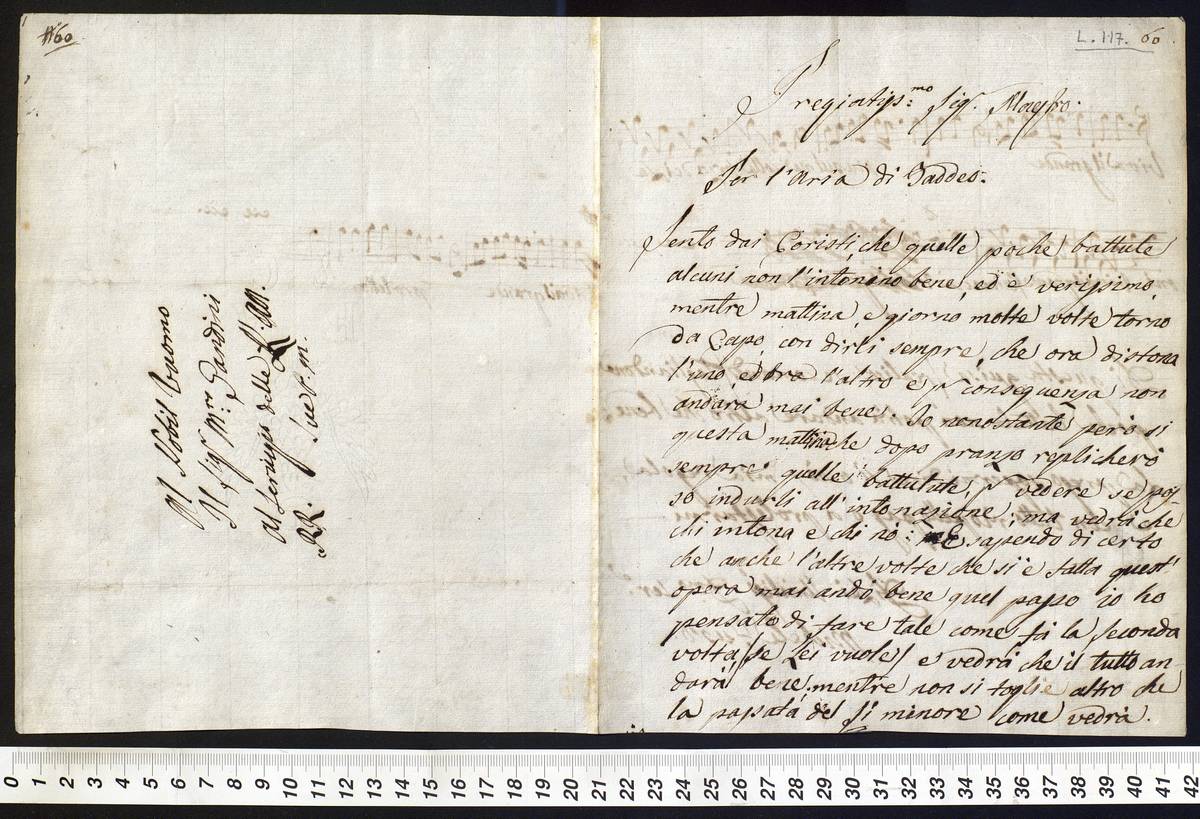 160
Al Nobil Uuomo
Il Sigr. Mro: Gandini
al Servizio delle LL. AA.
RR. Sue P. M.
L. 117. 60
Pregiatiss:mo Sigr. Maestro.
Per l'Aria di Taddeo.
Sento dai Coristi, che quelle poche battute
alcuni non l'intonino bene, ed è verissimo,
mentre mattina, e giorno molte volte torno
da Capo, con dirli sempre, che ora distona
l'uno, ed ora l'altro e p conseguenza non
andarà mai bene. Io nonostante però si
questa mattina che dopo pranzo replicherò
sempre quelle battutate, p vedere se pos-
so indurli all'intonazione; ma vedrà che
chi intona e chi nò: E sapendo di certo
che anche l'altre volte che si è fatta quest'
opera mai andò bene quel passo io ho
pensato di fare tale come fà la seconda
volta /se Lei vuole/ e vedrà che il tutto an-
darà bene, mentre non si toglie altro che
la passata del Si minore come vedrà.
0 1 2 3 4 5 6 7 8 9 10 11 12 13 14 15 16 17 18 19 20 21 22 23 24 25 26 27 28 29 30 31 32 33 34 35 36 37 38 39 40 41 42